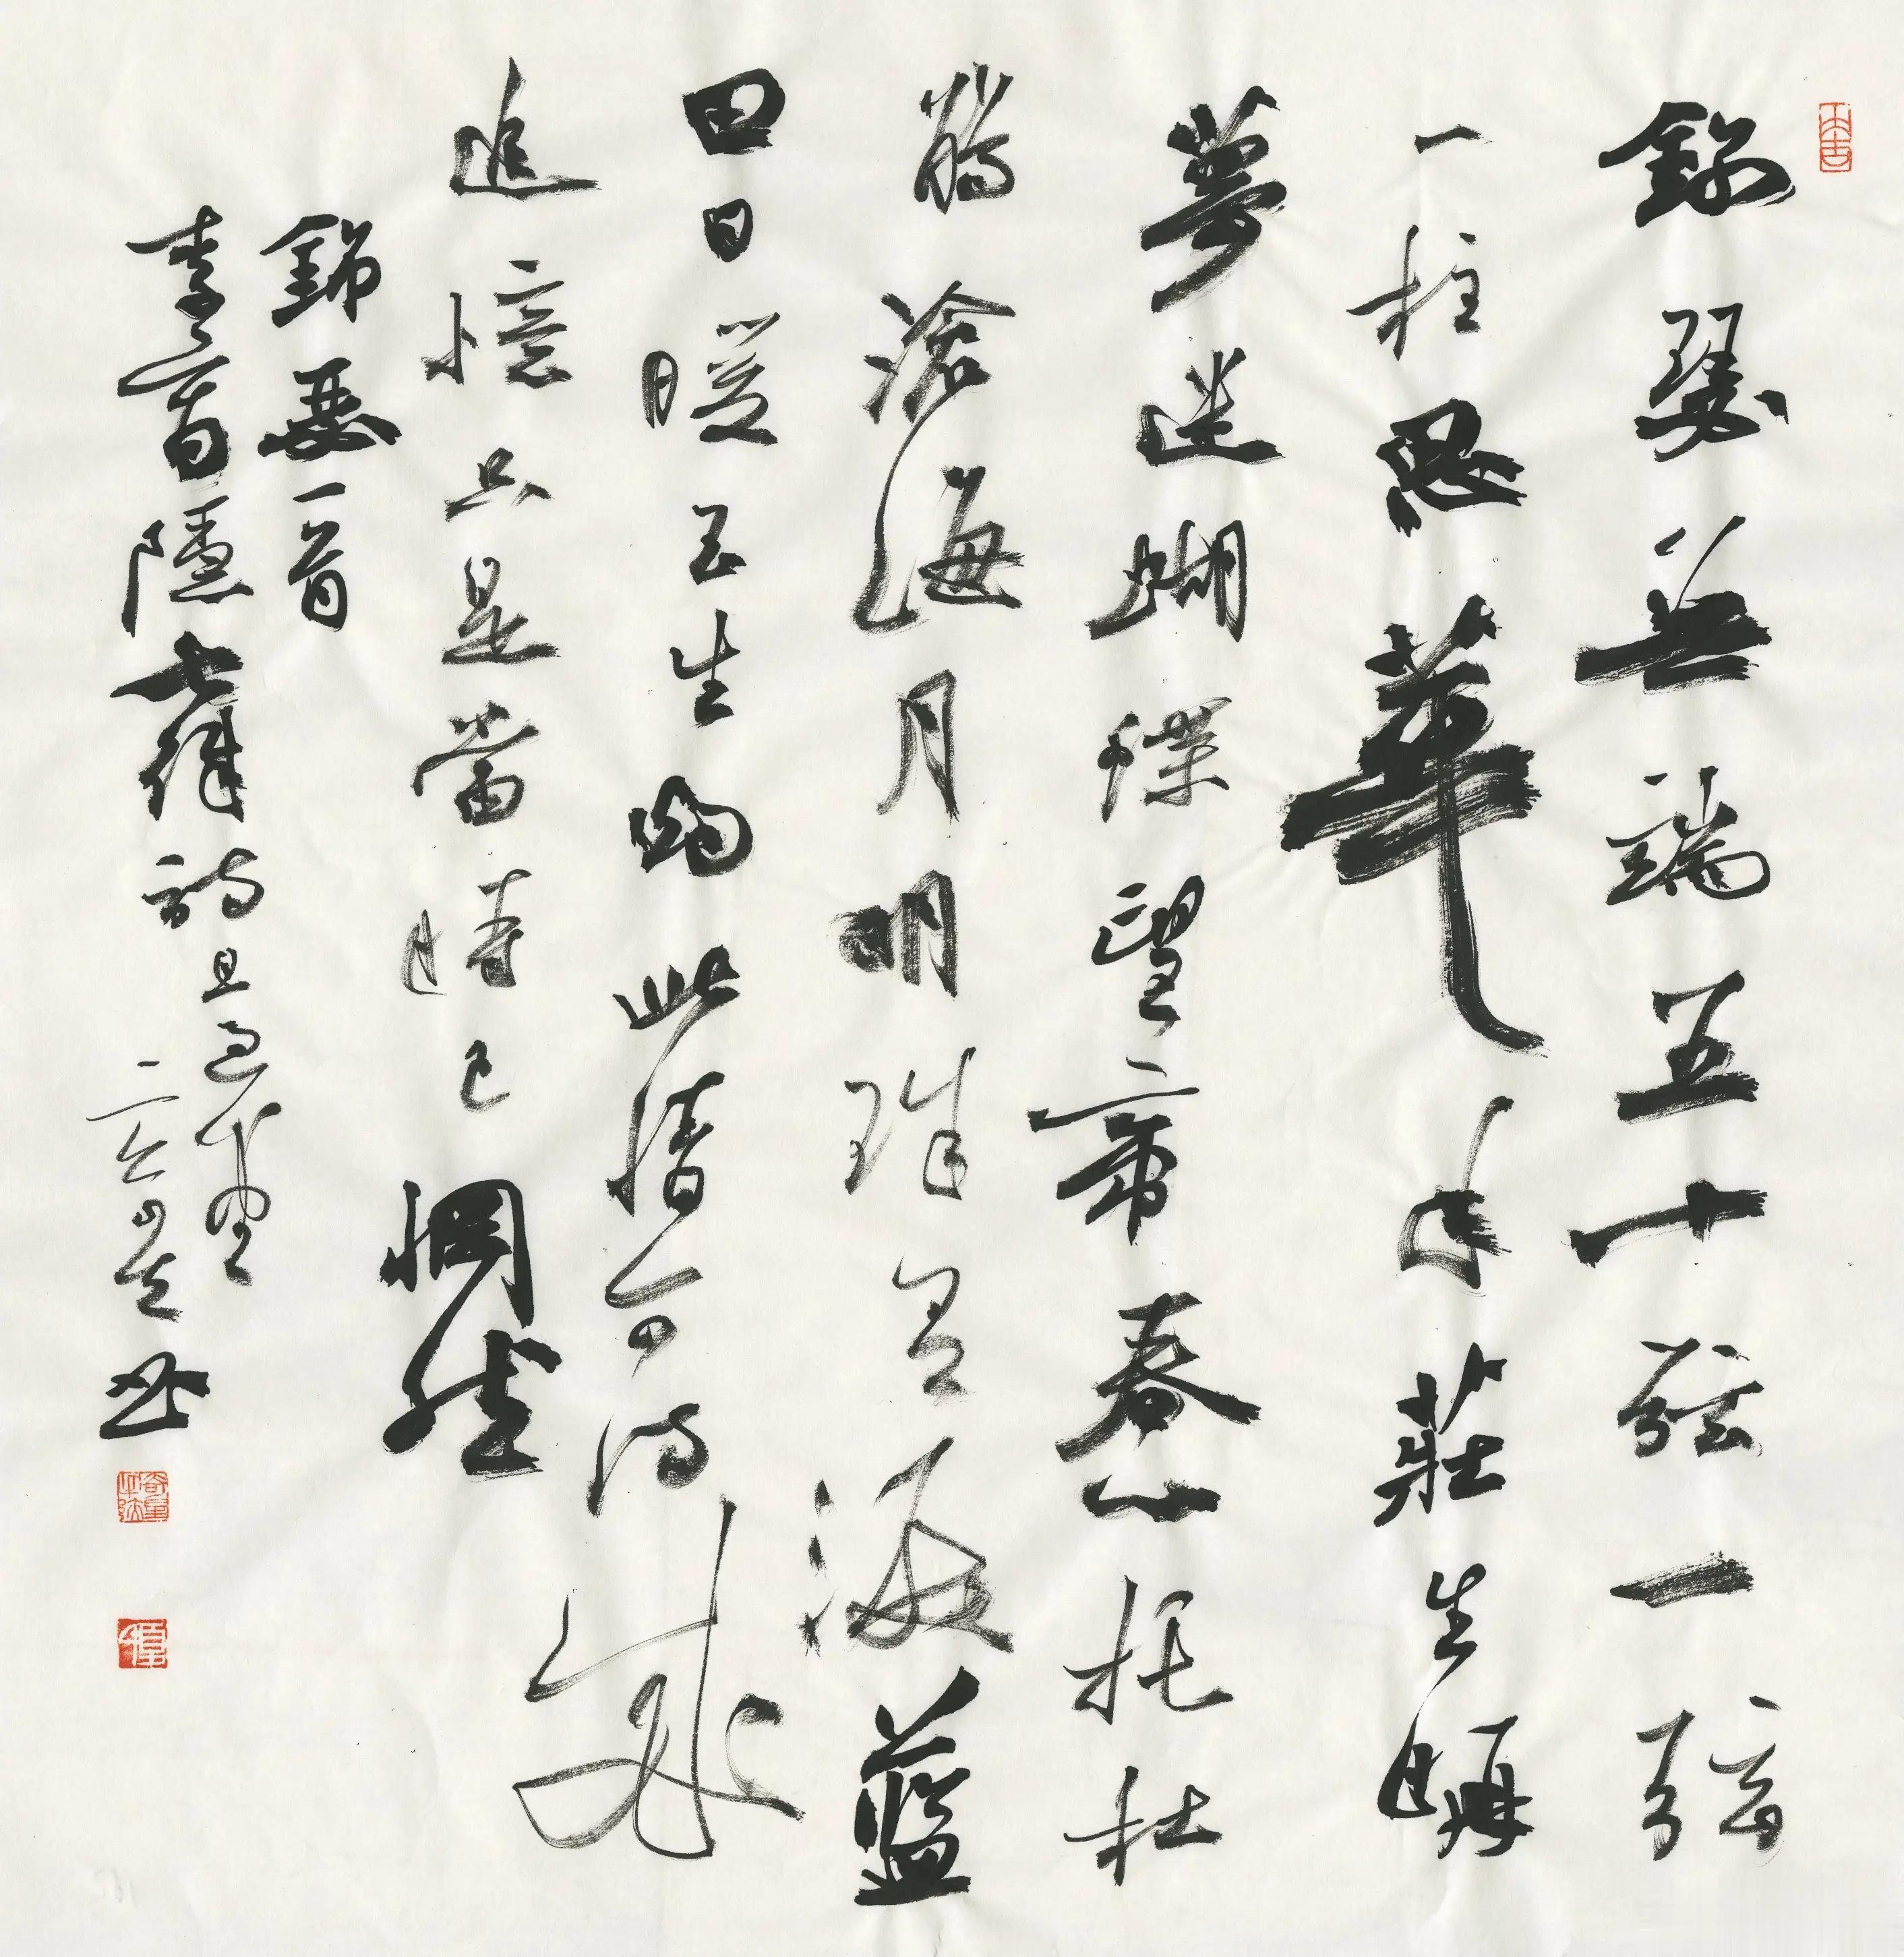 錦瑟無端五十弦一弦
一柱思華年莊生曉
夢迷蝴蝶望帝春心托杜
鵑滄海月明珠有淚藍
田日暖玉生煙此情可待成
追憶只是當時已惘然
錦瑟一首
李商隱七律詩
書